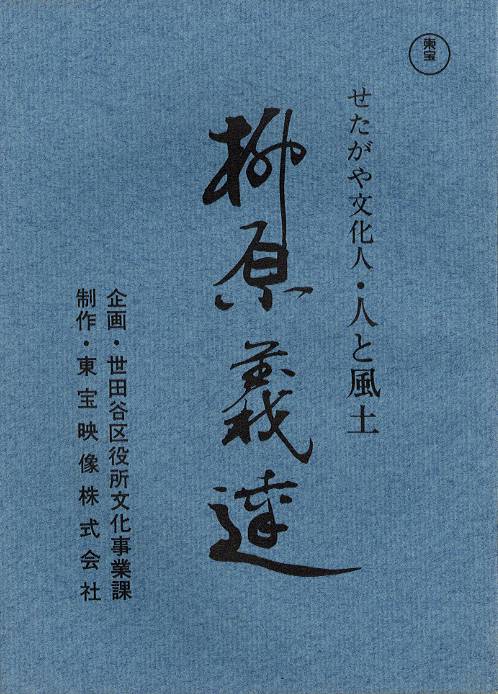 東宝
せたがや文化人・人と風土
柳原義達
企画・世田谷区役所文化事業課
制作・東宝映像株式会社